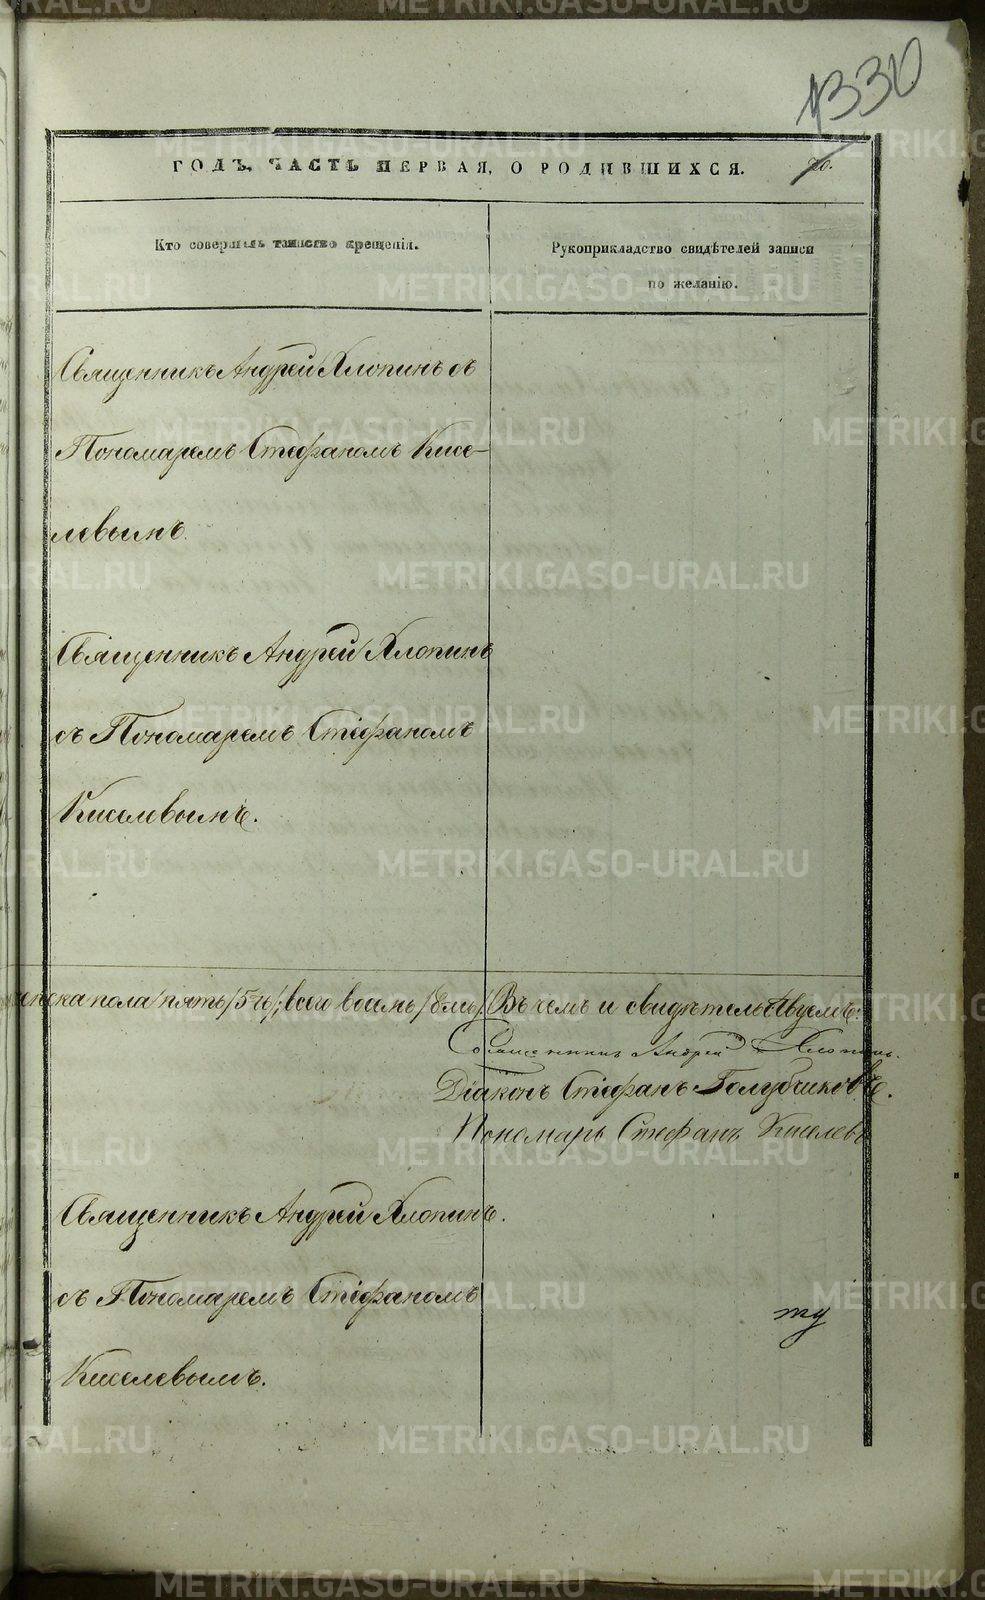 330
ГОДЪ, ЧАСТЬ ПЕРВАЯ, О РОДИВШИХСЯ.
Кто совершалъ таинство крещенія.
Рукоприкладство свидѣтелей записи
по желанію.
Священникъ Андрей Хлопинъ съ
Пономаремъ Стефаномъ Кисе-
левымъ.
Священникъ Андрей Хлопинъ
съ Пономаремъ Стефаномъ
Киселевымъ.
женска пола /пять/ 5ть/; всего восмь /8мь/. Въ чемъ и свидѣтельствуемъ:
Священникъ Андрей Хлопинъ.
Діаконъ Стефанъ Голубчиковъ.
Пономарь Стефанъ Киселевъ
Священникъ Андрей Хлопинъ.
съ Пономаремъ Стефаномъ
Киселевымъ.
ту
METRIKI.GASO-URAL.RU